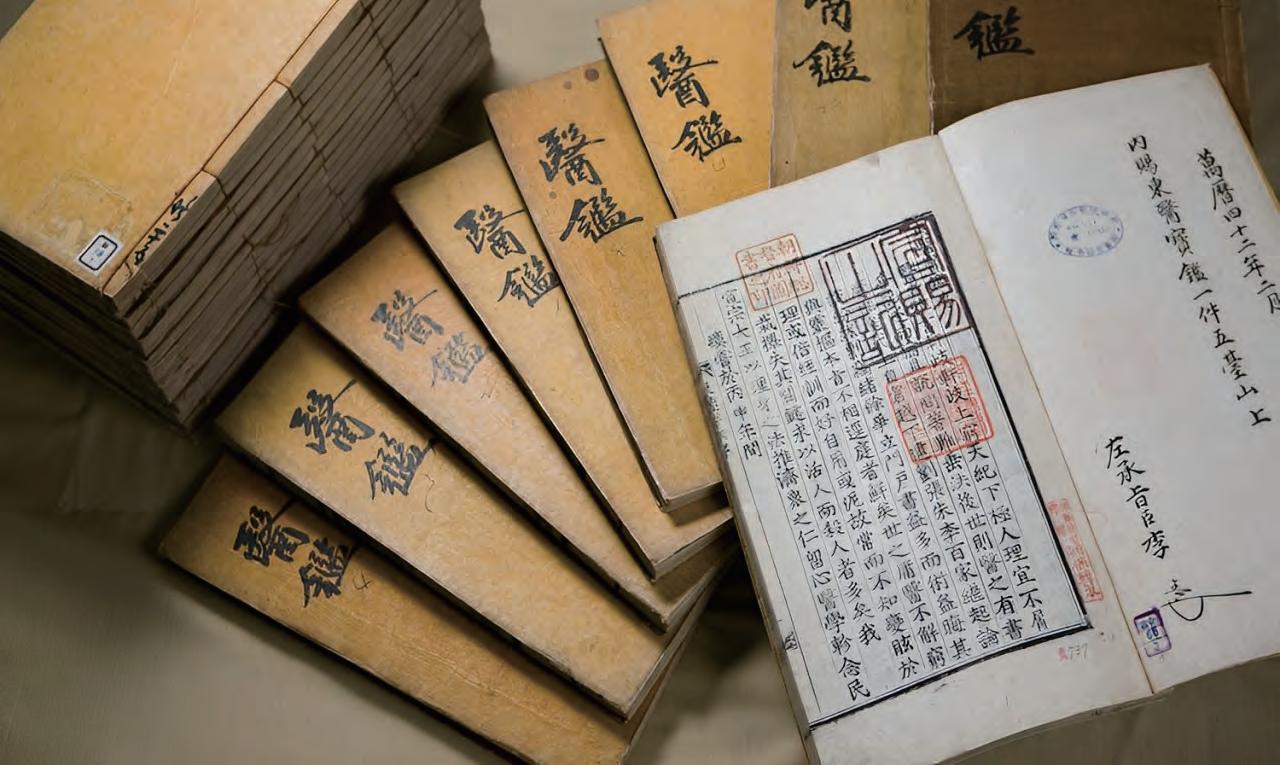 醫鑑
醫鑑
醫鑑
醫鑑
醫鑑
醫鑑
鑑
鑑
萬曆四十二年二
內賜東醫寶鑑一件五臺山上
左承旨臣李
宣賜之記
岐軒岐上窮天紀下極人理宜不屑
說問著難垂法後世則醫之有書
自倉越下逮劉張朱李百家繼起論
緒餘爭立門戶書益多而術益晦其
與靈樞本旨不相逕庭者鮮矣世之庸醫不解窮
理或倍經訓而好自用或泥故常而不知變眩於
裁擇失其關鍵求以活人而殺人者多矣我
宣宗大王以理身之法推濟衆之仁留心醫學軫念民
瘼嘗於丙申年間
737